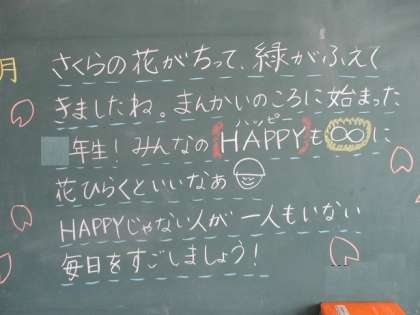 月
さくらの花がちって、緑がふえて
きましたね。まんかいのころに始まった
ハッピー
年生！みんなのHAPPYも∞に
花ひらくといいなあ
HAPPYじゃない人が一人もいない
毎日をすごしましょう！